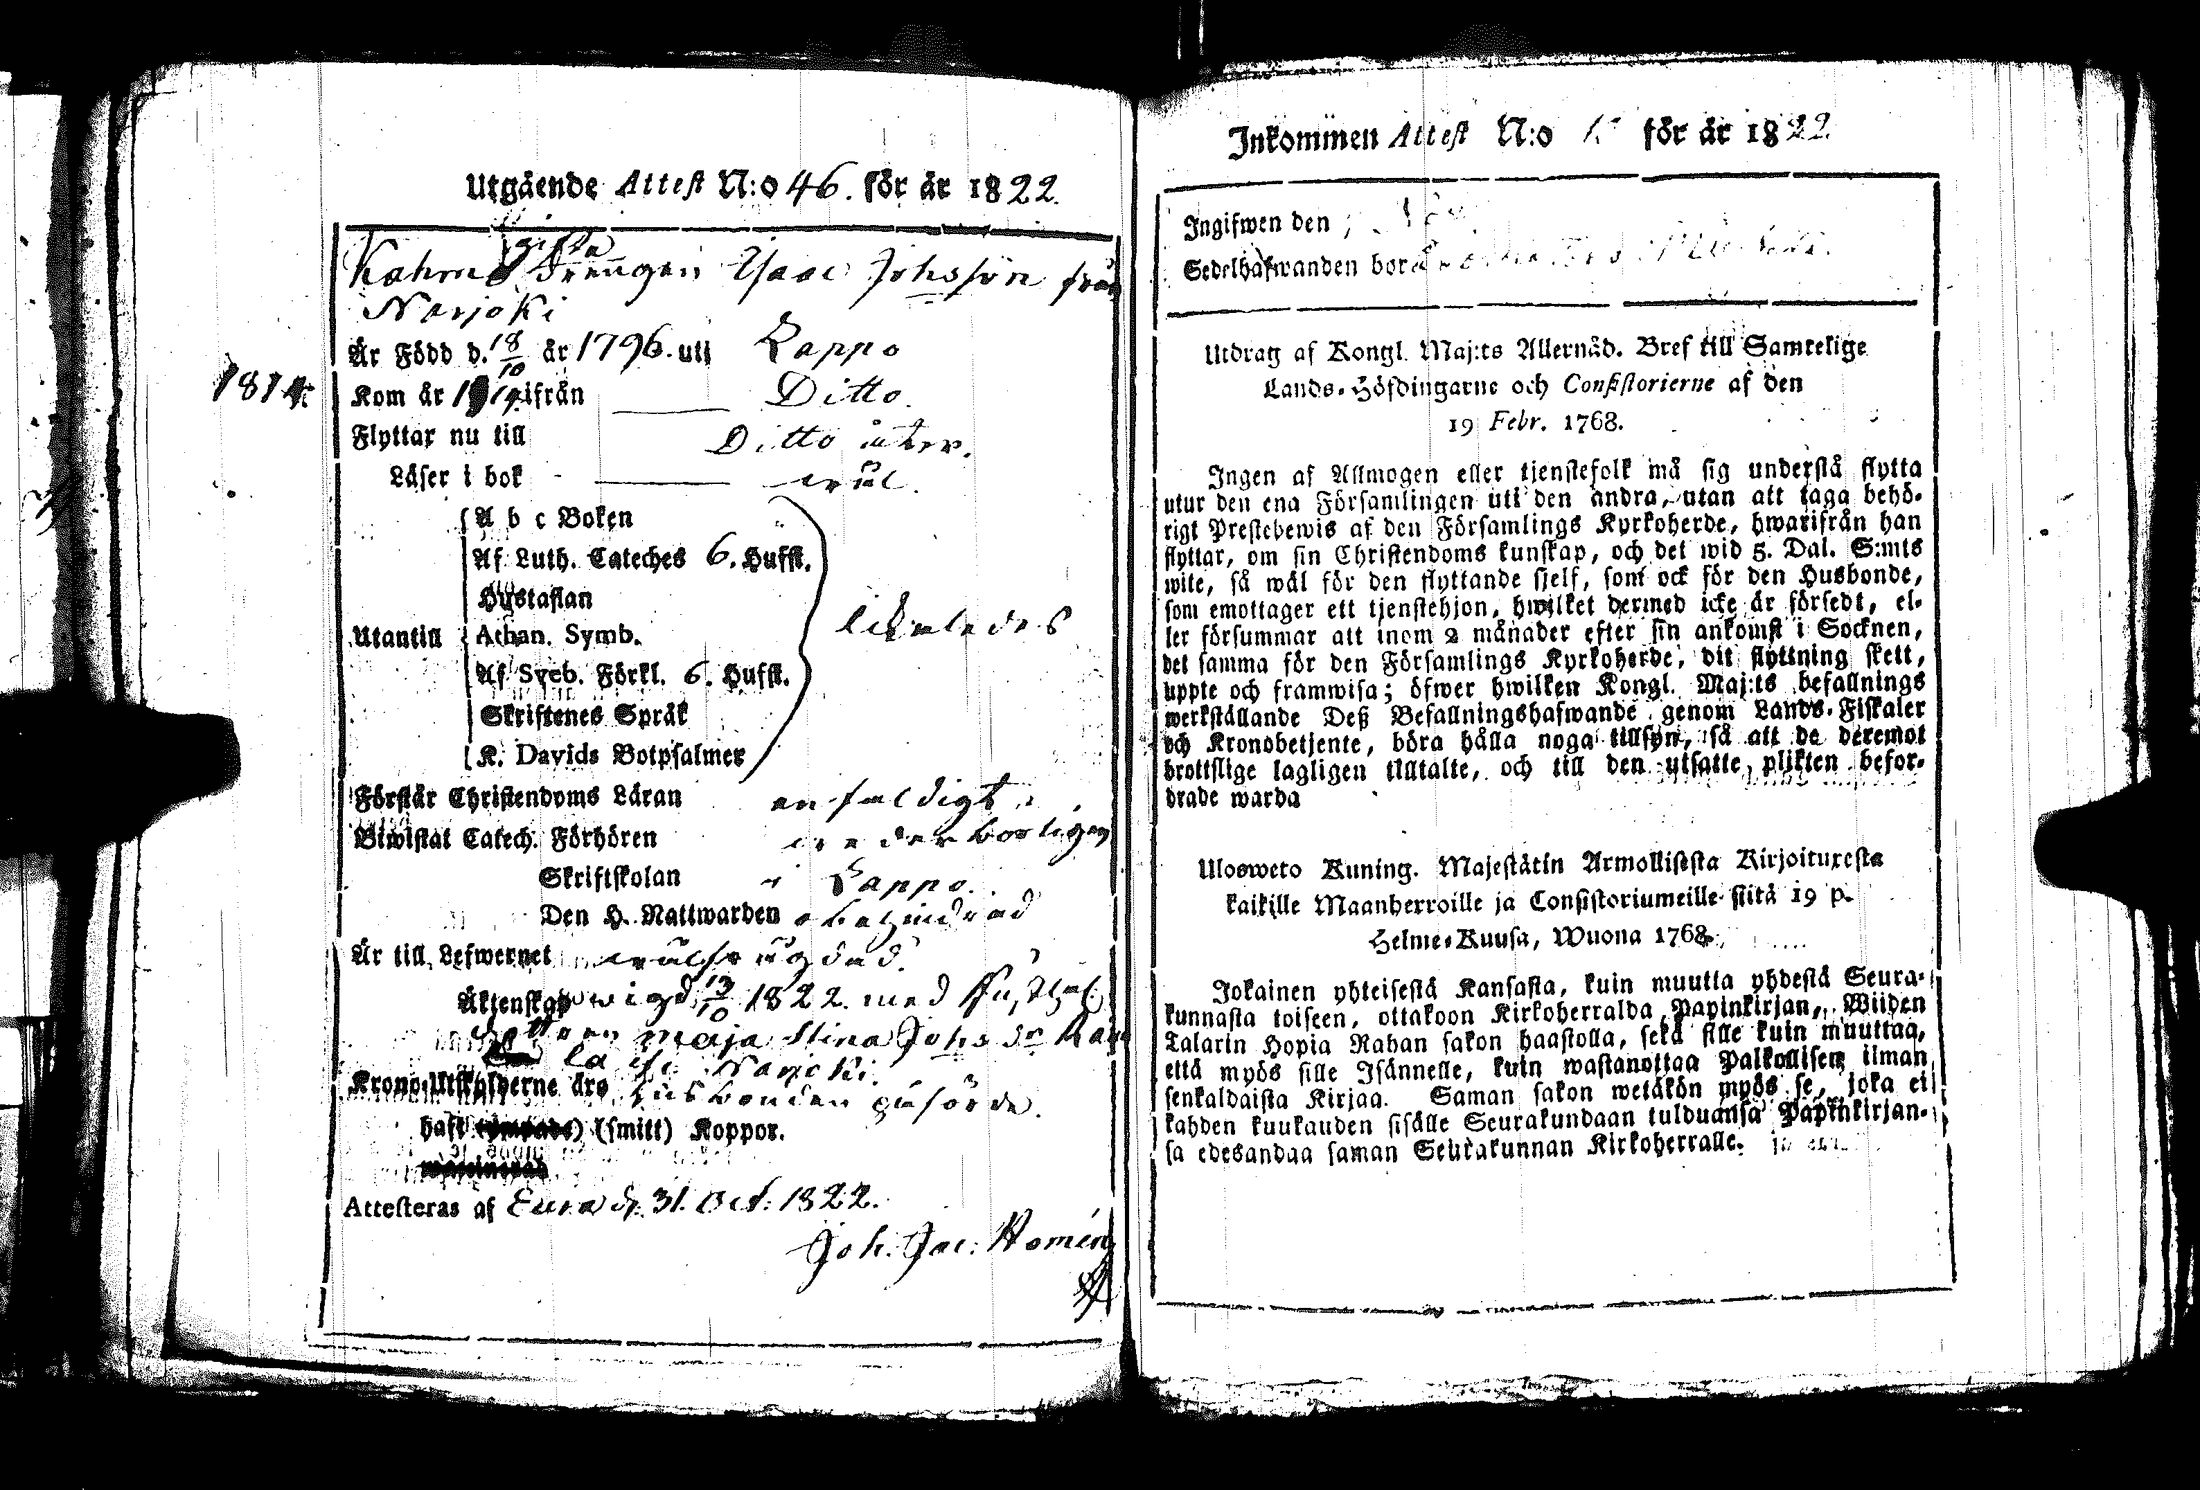 Utgående Attest N:o 46. för år 1822.
gifta
Drengen Isaac Johsson från
Narjoki
Är Född d. 18/10 år 1796. uti Lappo
1814.
Kom år 1814 ifrån Ditto.
Flyttar nu till Ditto åter.
Läser i bok wäl.
A b c Boken
Af Luth. Cateches 6. Hufst.
Hustaflan
Utantill Athan. Symb. likaledes
Af Sveb. Förkl. 6. Hufst.
Skriftenes Språk
K. Davids Botpsalmer
Förstår Christendoms Läran enfaldigt
Biwistat Catech. Förhören wederbörligen
Skriftskolan i Lappo.
Den H. Nattwarden obehindrad
Är till Lefwernet wälfrägdad.
Äktenskap wigd 13/10 1822. med
dottren Maja Stina Johsdr
Krono-Utskylderne äro husbonden påförde.
haft (smitt) Koppor.
Attesteras af Eura d. 31. Oct. 1822.
Joh. Jac. Homén
Inkommen Attest N:o för år 1822
Ingifwen den
Sedelhafwanden bor
Utdrag af Kongl. Maj:ts Allernåd. Bref till Samtelige
Lands-Höfdingarne och Consistorierne af den
19 Febr. 1768.
Ingen af Allmogen eller tjenstefolk må sig understå flytta
utur den ena Församlingen uti den andra, utan att taga behö-
rigt Prestebewis af den Församlings Kyrkoherde, hwarifrån han
flyttar, om sin Christendoms kunskap, och det wid 5. Dal. S:mts
wite, så wäl för den flyttande sjelf, som ock för den Husbonde,
som emottager ett tjenstehjon, hwilket dermed icke är försedt, el-
ler försummar att inom 2 månader efter sin ankomst i Socknen,
det samma för den Församlings Kyrkoherde, dit flyttning skett,
uppte och framwisa; öfwer hwilken Kongl. Maj:ts befallnings
werkställande Deß Befallningshafwande genom Lands-Fiskaler
och Kronobetjente, böra hålla noga tillsyn, så att de deremot
brottslige lagligen tilltalte, och till den utsatte plikten befor-
drade warda
Ulosweto Kuning. Majestätin Armollisesta Kirjoituxesta
kaikille Maanherroille ja Consistoriumeille siitä 19 p.
Helme-Kuusa, Wuona 1768.
Jokainen yhteisestä Kansasta, kuin muutta yhdestä Seura-
kunnasta toiseen, ottakoon Kirkoherralda Papinkirjan, Wiiden
Talarin Hopia Rahan sakon haastolla, sekä sille kuin muuttaa,
että myös sille Isännelle, kuin wastanottaa Palkollisen ilman
senkaldaista Kirjaa. Saman sakon wetäkön myös se, joka ei
kahden kuukauden sisälle Seurakundaan tulduansa Papinkirjan-
sa edesandaa saman Seurakunnan Kirkoherralle.